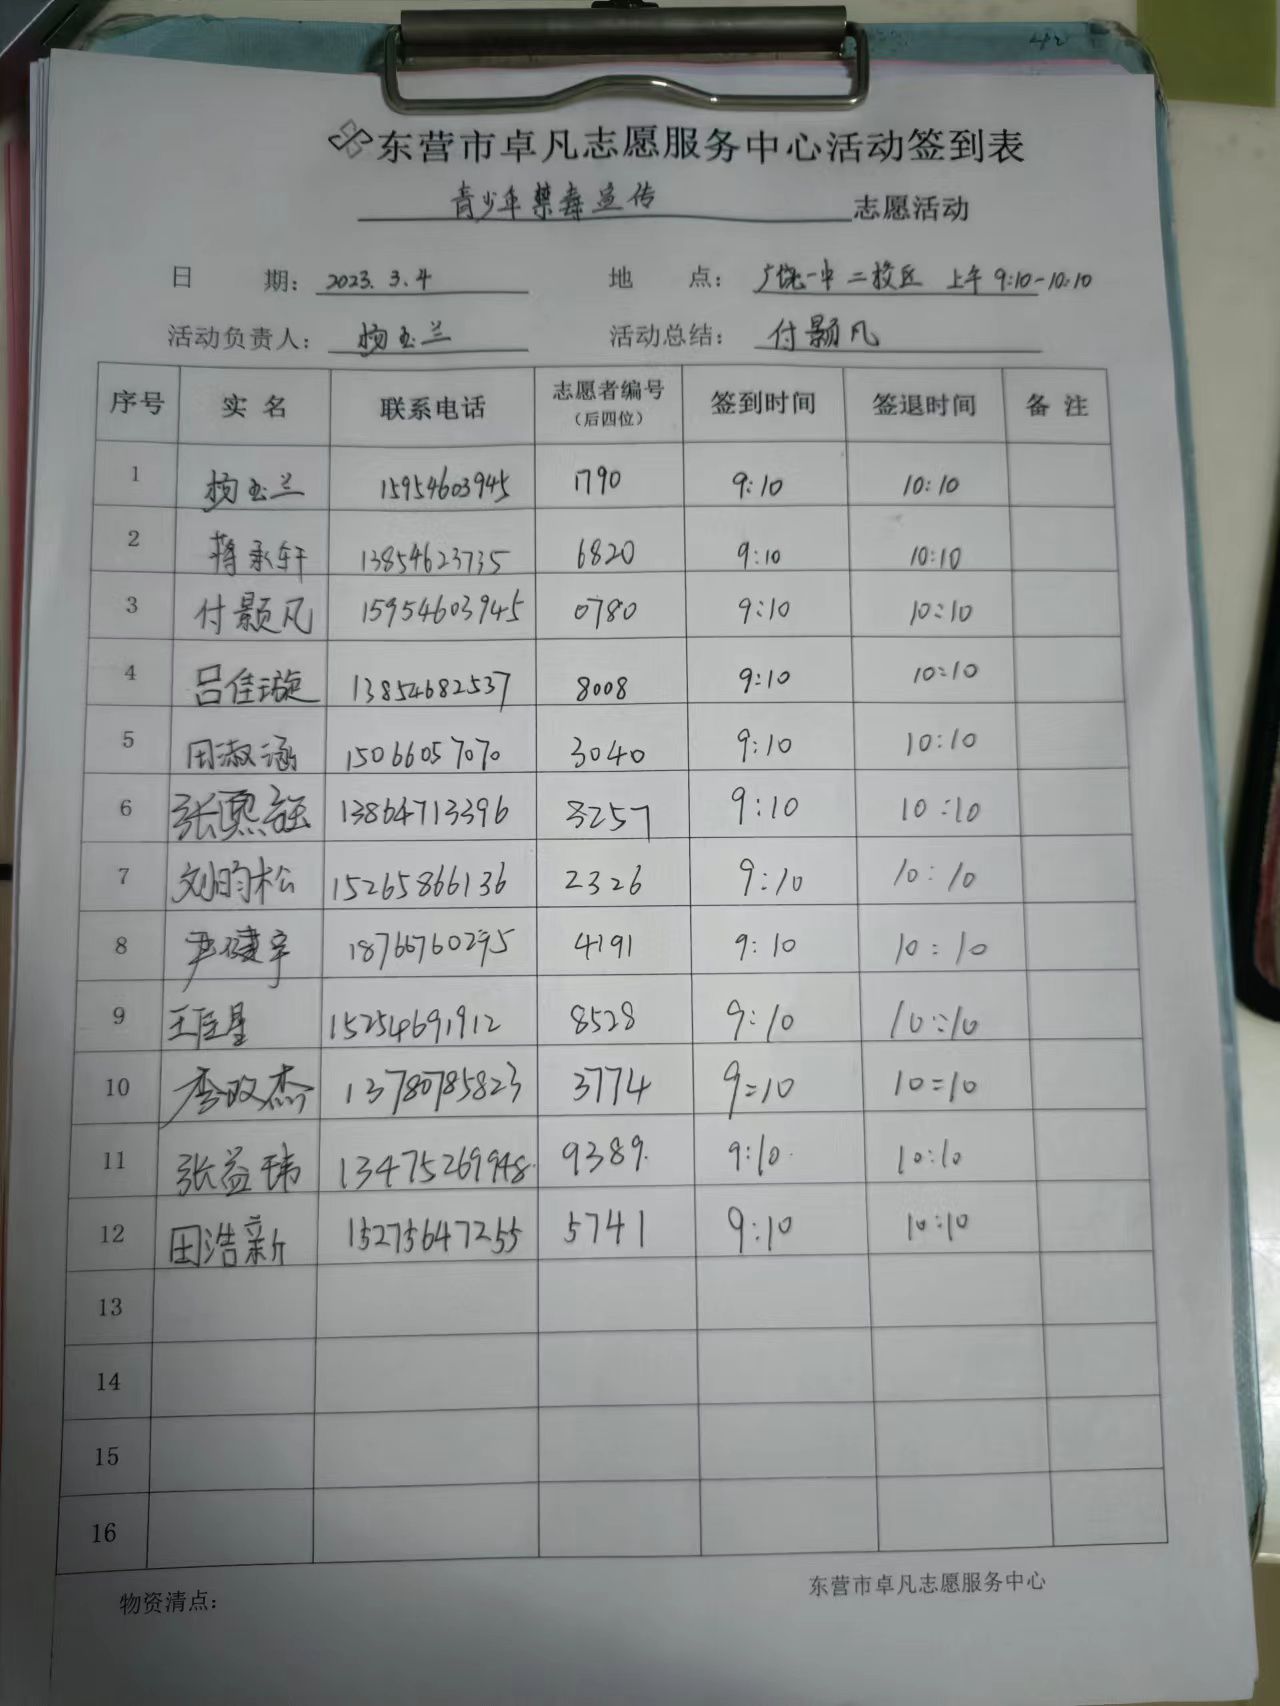 东营市卓凡志愿服务中心活动签到表
青少年禁毒宣传 志愿活动
日 期: 2023.3.4 地 点: 广饶一中二校区 上午 9:10-10:10
活动负责人: 杨玉兰 活动总结: 付颢凡
序号 实名 联系电话 志愿者编号(后四位) 签到时间 签退时间 备注
1 杨玉兰 15954603945 1790 9:10 10:10
2 蒋承轩 13854623735 6820 9:10 10:10
3 付颢凡 15954603945 0780 9:10 10:10
4 吕佳璇 13854682537 8008 9:10 10:10
5 田淑涵 15066057070 3040 9:10 10:10
6 张熙 13864713396 3257 9:10 10:10
7 刘昀松 15265866136 2326 9:10 10:10
8 尹健宇 18766760295 4191 9:10 10:10
9 王臣星 15254691912 8528 9:10 10:10
10 李政杰 13780785823 3774 9=10 10=10
11 张益玮 13475269948 9389 9:10 10:10
12 田浩新 15275647255 5741 9:10 10:10
13
14
15
16
物资清点:
东营市卓凡志愿服务中心